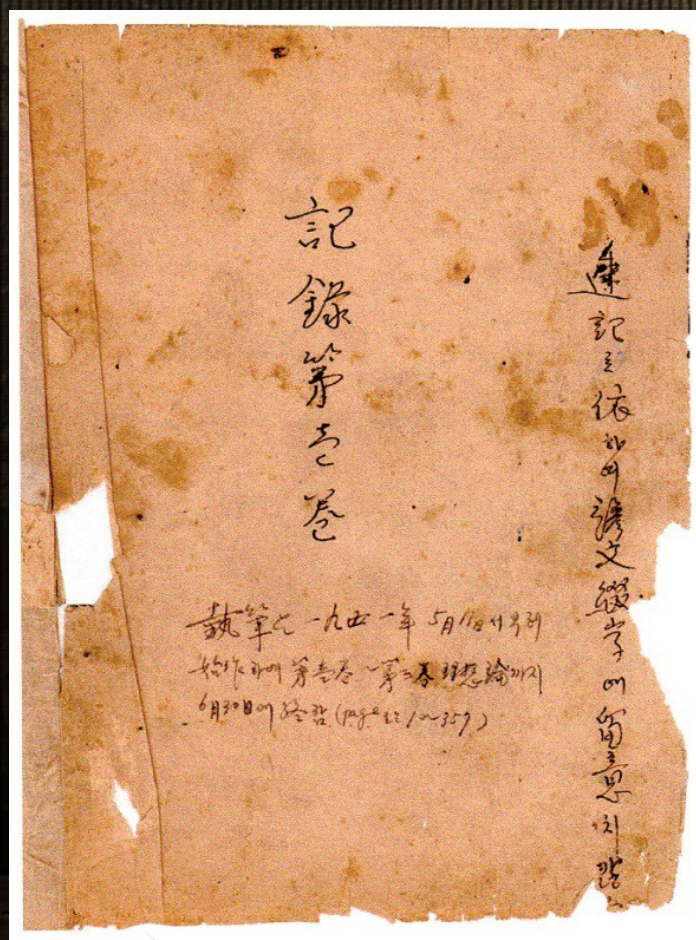 速記로 依하여 諺文綴字에 留意치 않
記錄第壱卷
執筆은 一九五一年 5月11日서부터
始作하여 第壱卷~第三卷 理想論까지
6月30日에 終함 (page은 1~359)